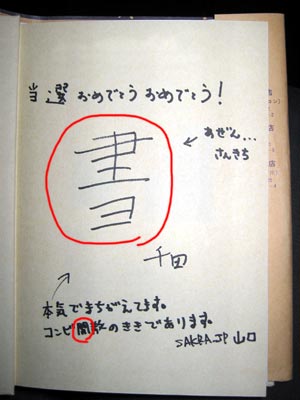 当選 おめでとう おめでとう！
書
あぜん...
さんきち
千田
本気でまちがえてます。
コンビ開散のききであります。
SAKRA.JP 山口